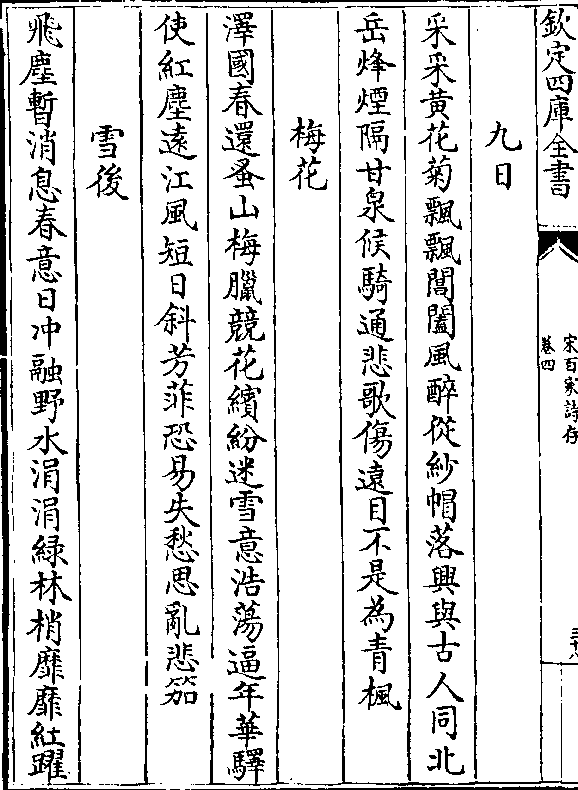 欽定四庫全書
宋百家詩存
卷四
九日
采采黃花菊飄飄閶闔風醉從紗帽落興與古人同北
岳烽煙隔甘泉候騎通悲歌傷遠目不是為青楓
梅花
澤國春還蚤山梅臘競花繽紛迷雪意浩蕩逼年華驛
使紅塵遠江風短日斜芳菲恐易失愁思亂悲笳
雪後
飛塵暫消息春意日冲融野水涓涓綠林梢靡靡紅躍